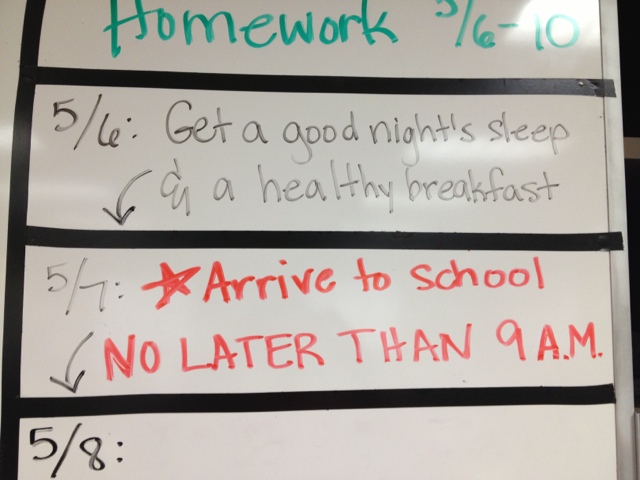 Homework 5/6-10
5/6: Get a good night's sleep
& a healthy breakfast
5/7: Arrive to school
NO LATER THAN 9 A.M.
5/8: